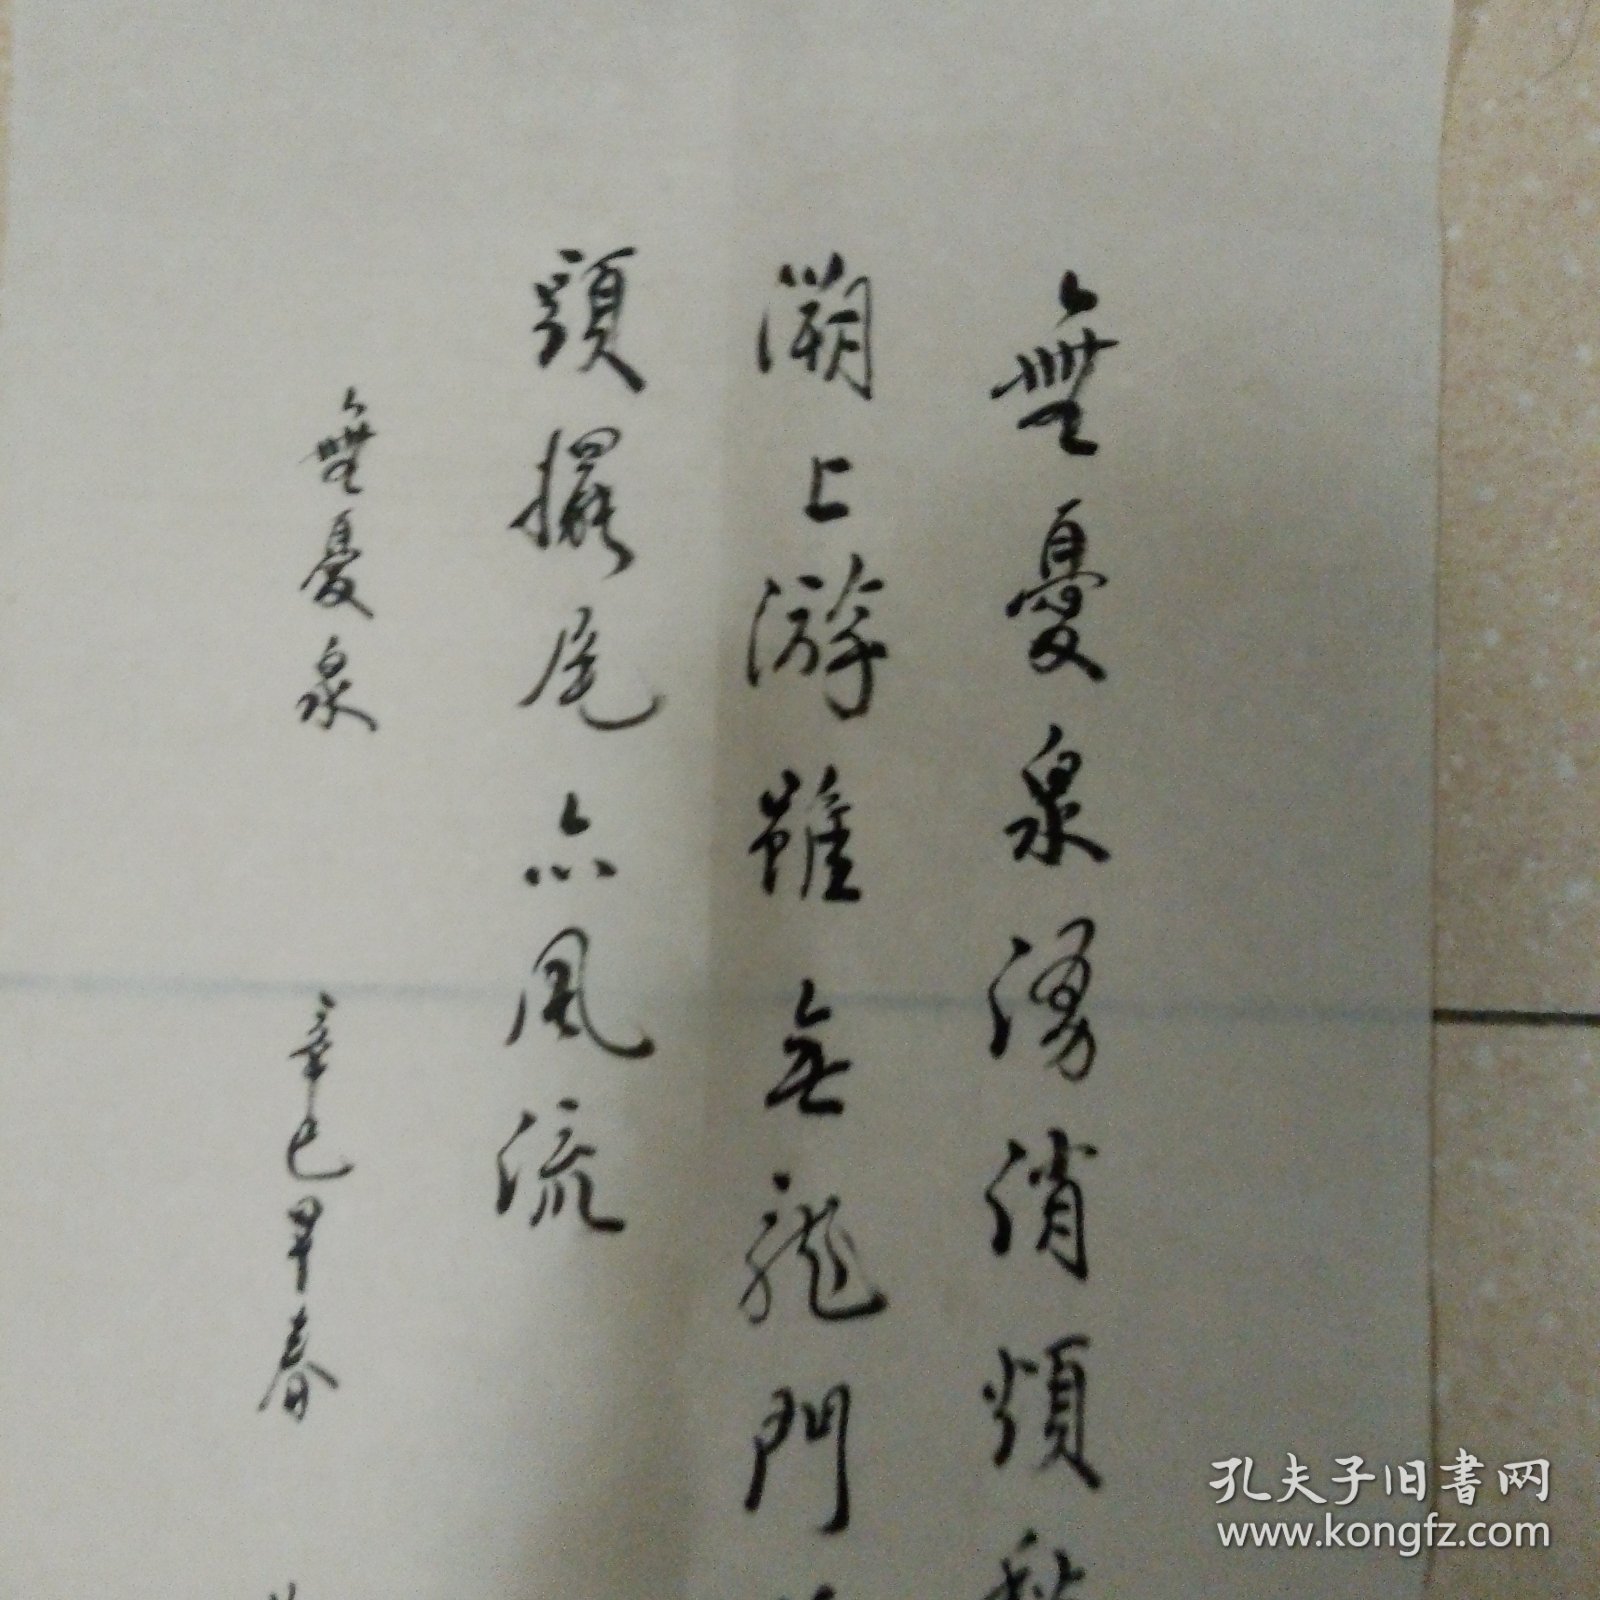 無憂泉湧消煩
溯上游雖無龍門
頭擺尾亦風流
無憂泉 辛巳早春
孔夫子旧書网
www.kongfz.com